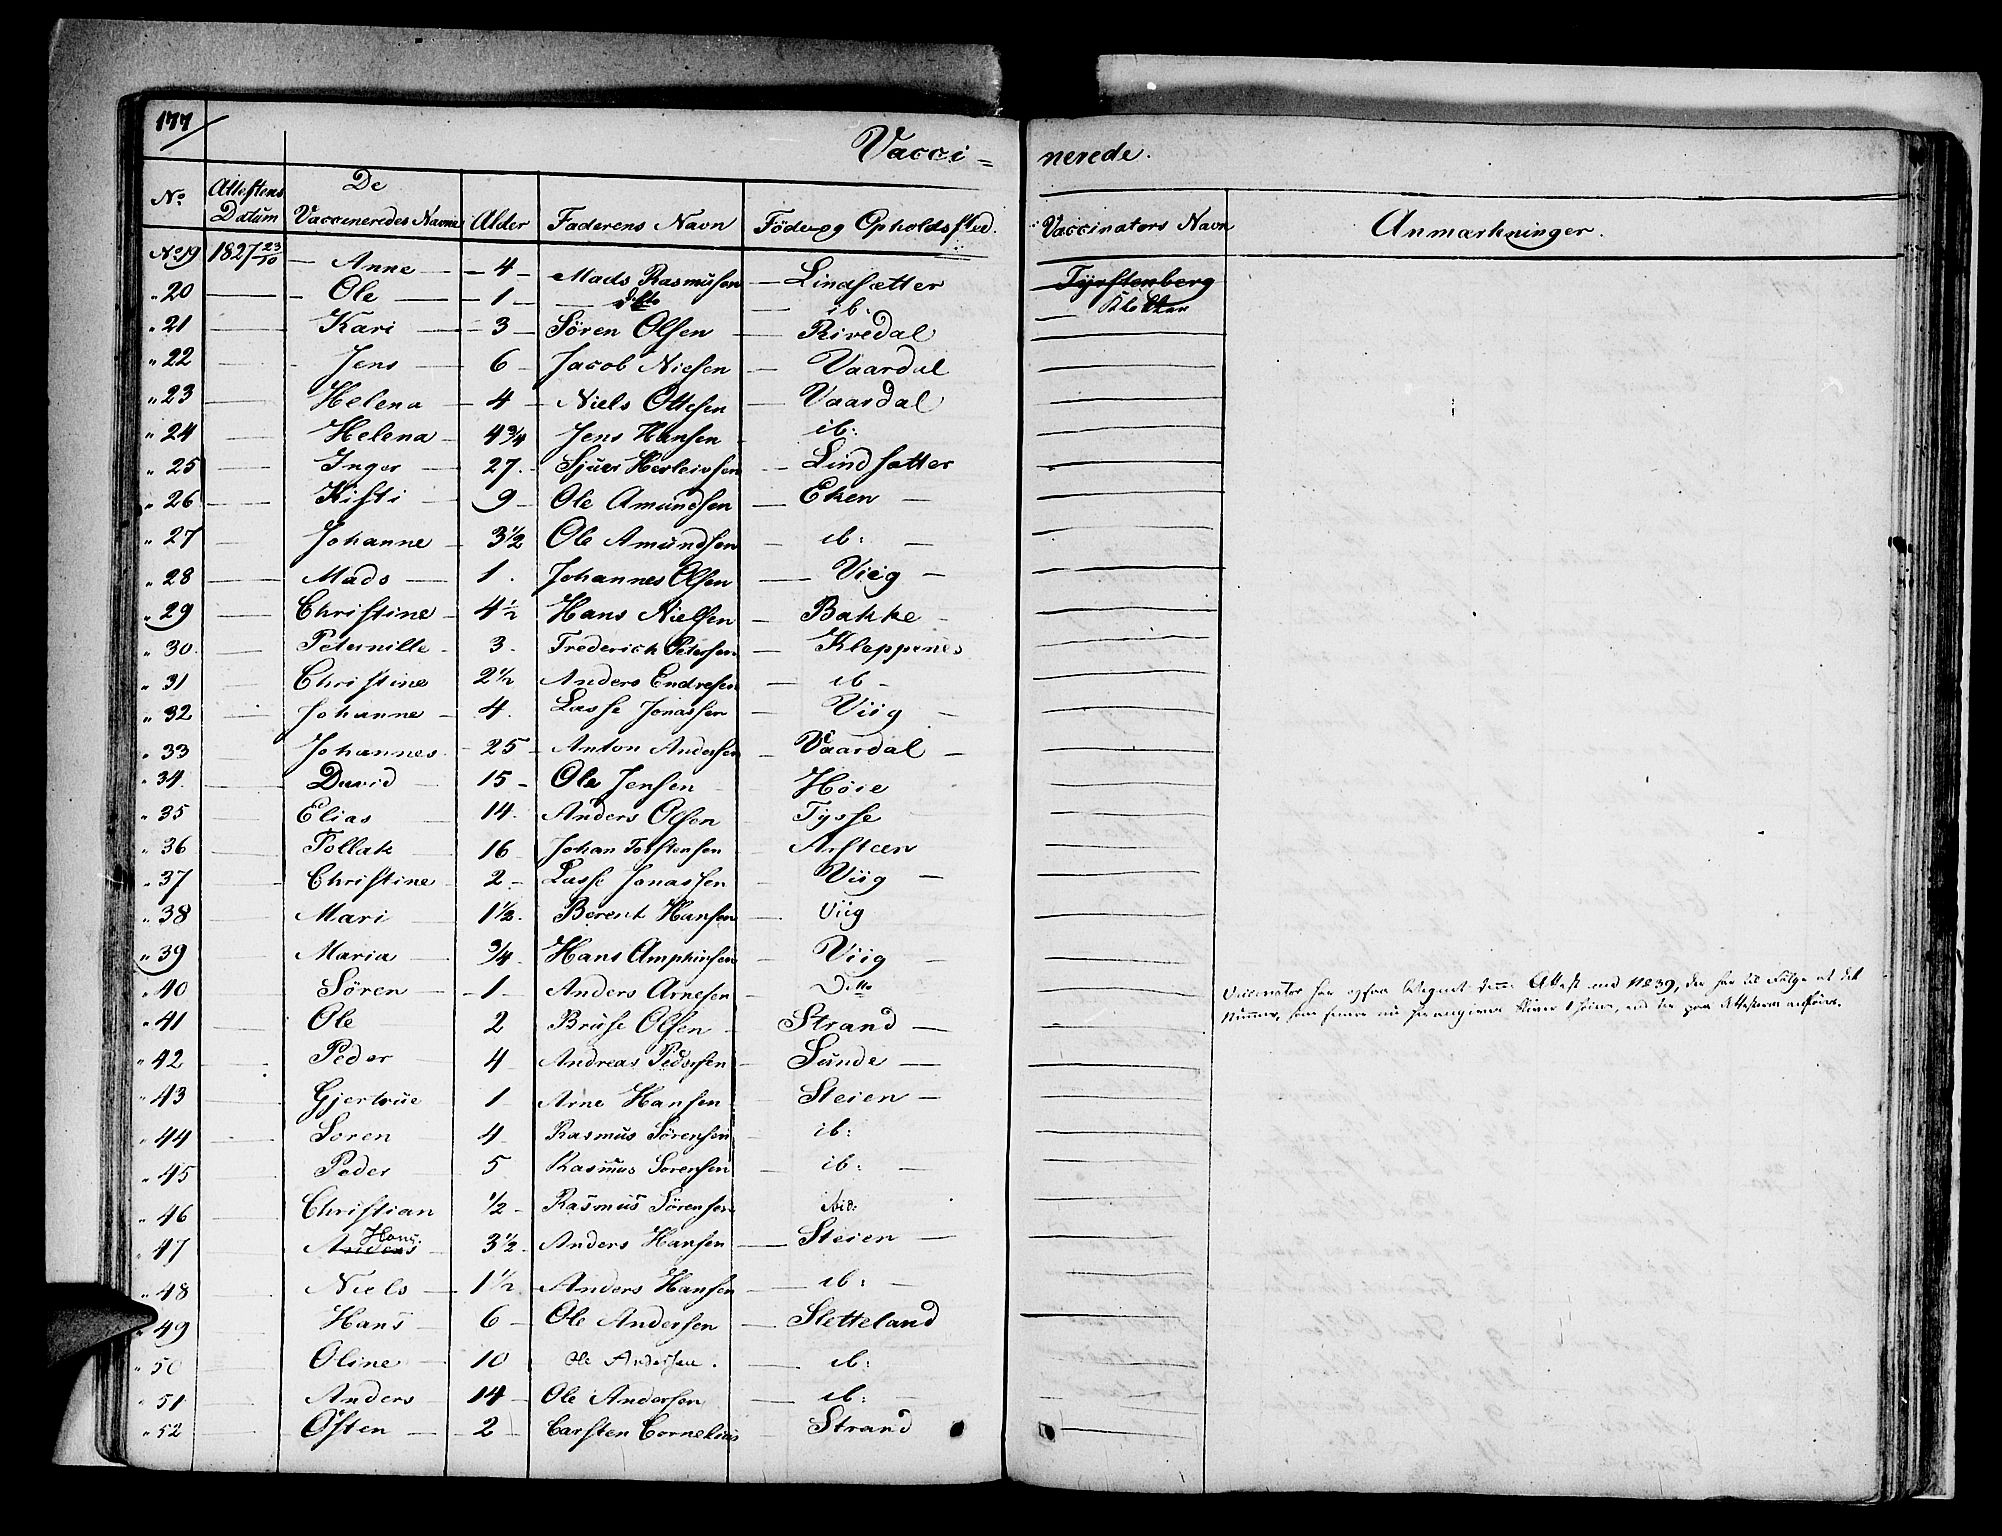 177
Vacci = nerede.
No Attestens Datum De Vaccineredes Navne Alder Faderens Navn Føde og Opholdssted. Vaccinators Navn Anmærkninger.
No 19 1827 23/10 — Anne — 4 — Mads Rasmussen — Lindsætter
" 20 — Ole — 1 — ditto — ib. Klokker
" 21 — Kari — 3 — Søren Olsen — Rivedal
" 22 — Jens — 6 — Jacob Nielsen — Vaardal
" 23 — Helena — 4 — Niels Ottesen — Vaardal
" 24 — Helena — 4 3/4 Jens Hansen — ib:
" 25 — Inger — 27. Sjuer Herleivsen — Lindsætter
" 26 — Kisti — 9 — Ole Amundsen — Eken —
" 27 — Johanne — 3 1/2 Ole Amundsen — ib: —
" 28 — Mads — 1. Johannes Olsen — Viig —
" 29 — Christine — 4 1/2 Hans Nielsen — Bakke —
" 30. — Peternille — 3. Frederich Petersen — Kleppenes
" 31 — Christine 2 1/2 Anders Endresen — ib —
" 32 — Johanne — 4. Lasse Jonassen — Viig —
" 33 — Johannes — 25 — Anton Andersen — Vaardal —
" 34. — David — 15 — Ole Jensen — Høie
" 35 — Elias — 14. Anders Olsen — Tysse
" 36 — Tollak — 16 Johan Torstensen — Arsteen
" 37 — Christine — 2 — Lasse Jonassen — Viig —
" 38 — Mari — 1 1/2. Berent Hansen — Viig
" 39 — Maria — 3/4 Hans Amphinsen — Viig —
" 40 — Søren — 1 — Anders Arnesen — Ditto
" 41 — Ole 2 Bruse Olsen — Strand —
" 42 — Peder 4 Andreas Pedersen — Sunde —
" 43 — Gjertrue 1 — Arne Hansen — Steien —
" 44 — Søren 4 Rasmus Sørensen — ib:
" 45 — Peder 5 Rasmus Sørensen — ib: —
" 46 — Christian 1/2 — Rasmus Sørensen ibid:
" 47 — Anders Hans. 3 1/2. Anders Hansen — Steien —
" 48 — Niels — 1 1/2. Anders Hansen — ib: —
" 49 — Hans — 6 — Ole Andersen — Sletteland
" 50 — Oline — 10 Ole Andersen. — ib:
" 51 — Anders — 14 — Ole Andersen — ib: —
" 52 — Østen — 2 — Carsten Cornelius — Strand